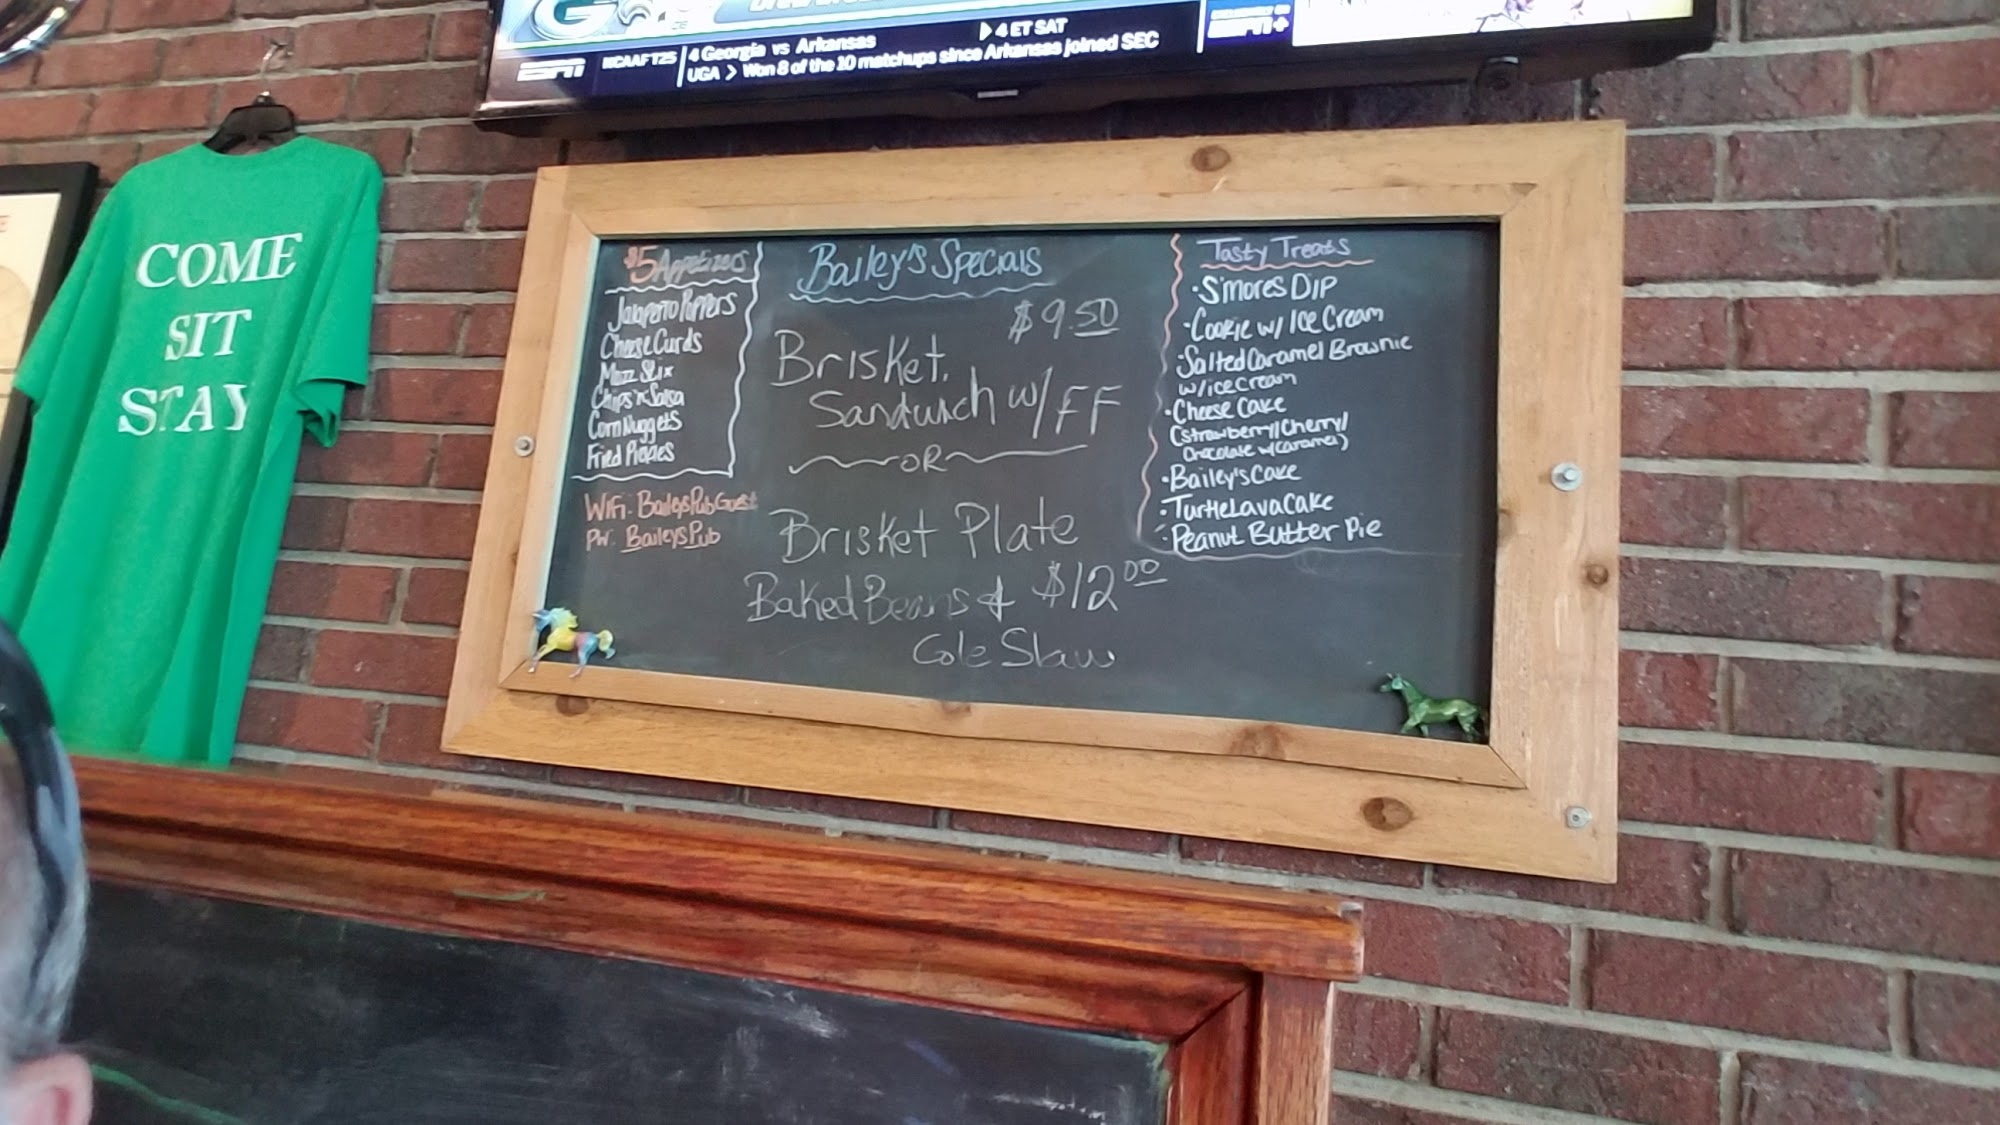 G
ESPN
NCAAF T25
4 Georgia vs Arkansas
4 ET SAT
UGA > Won 8 of the 10 matchups since Arkansas joined SEC
ESPN+
COME
SIT
STAY
$5 Appetizers
Jalapeno Poppers
Cheese Curds
Mozz Stix
Chips n' Salsa
Corn Nuggets
Fried Pickles
WiFi: BaileysPubGuest
PW: BaileysPub
Bailey's Specials
$9.50
Brisket
Sandwich w/ FF
OR
Brisket Plate
Baked Beans & $12.00
Cole Slaw
Tasty Treats
• S'mores Dip
• Cookie w/ Ice Cream
• Salted Caramel Brownie
w/ ice cream
• Cheese Cake
(strawberry/Cherry/
Chocolate w/ caramel)
• Bailey's Cake
• Turtle Lava Cake
• Peanut Butter Pie